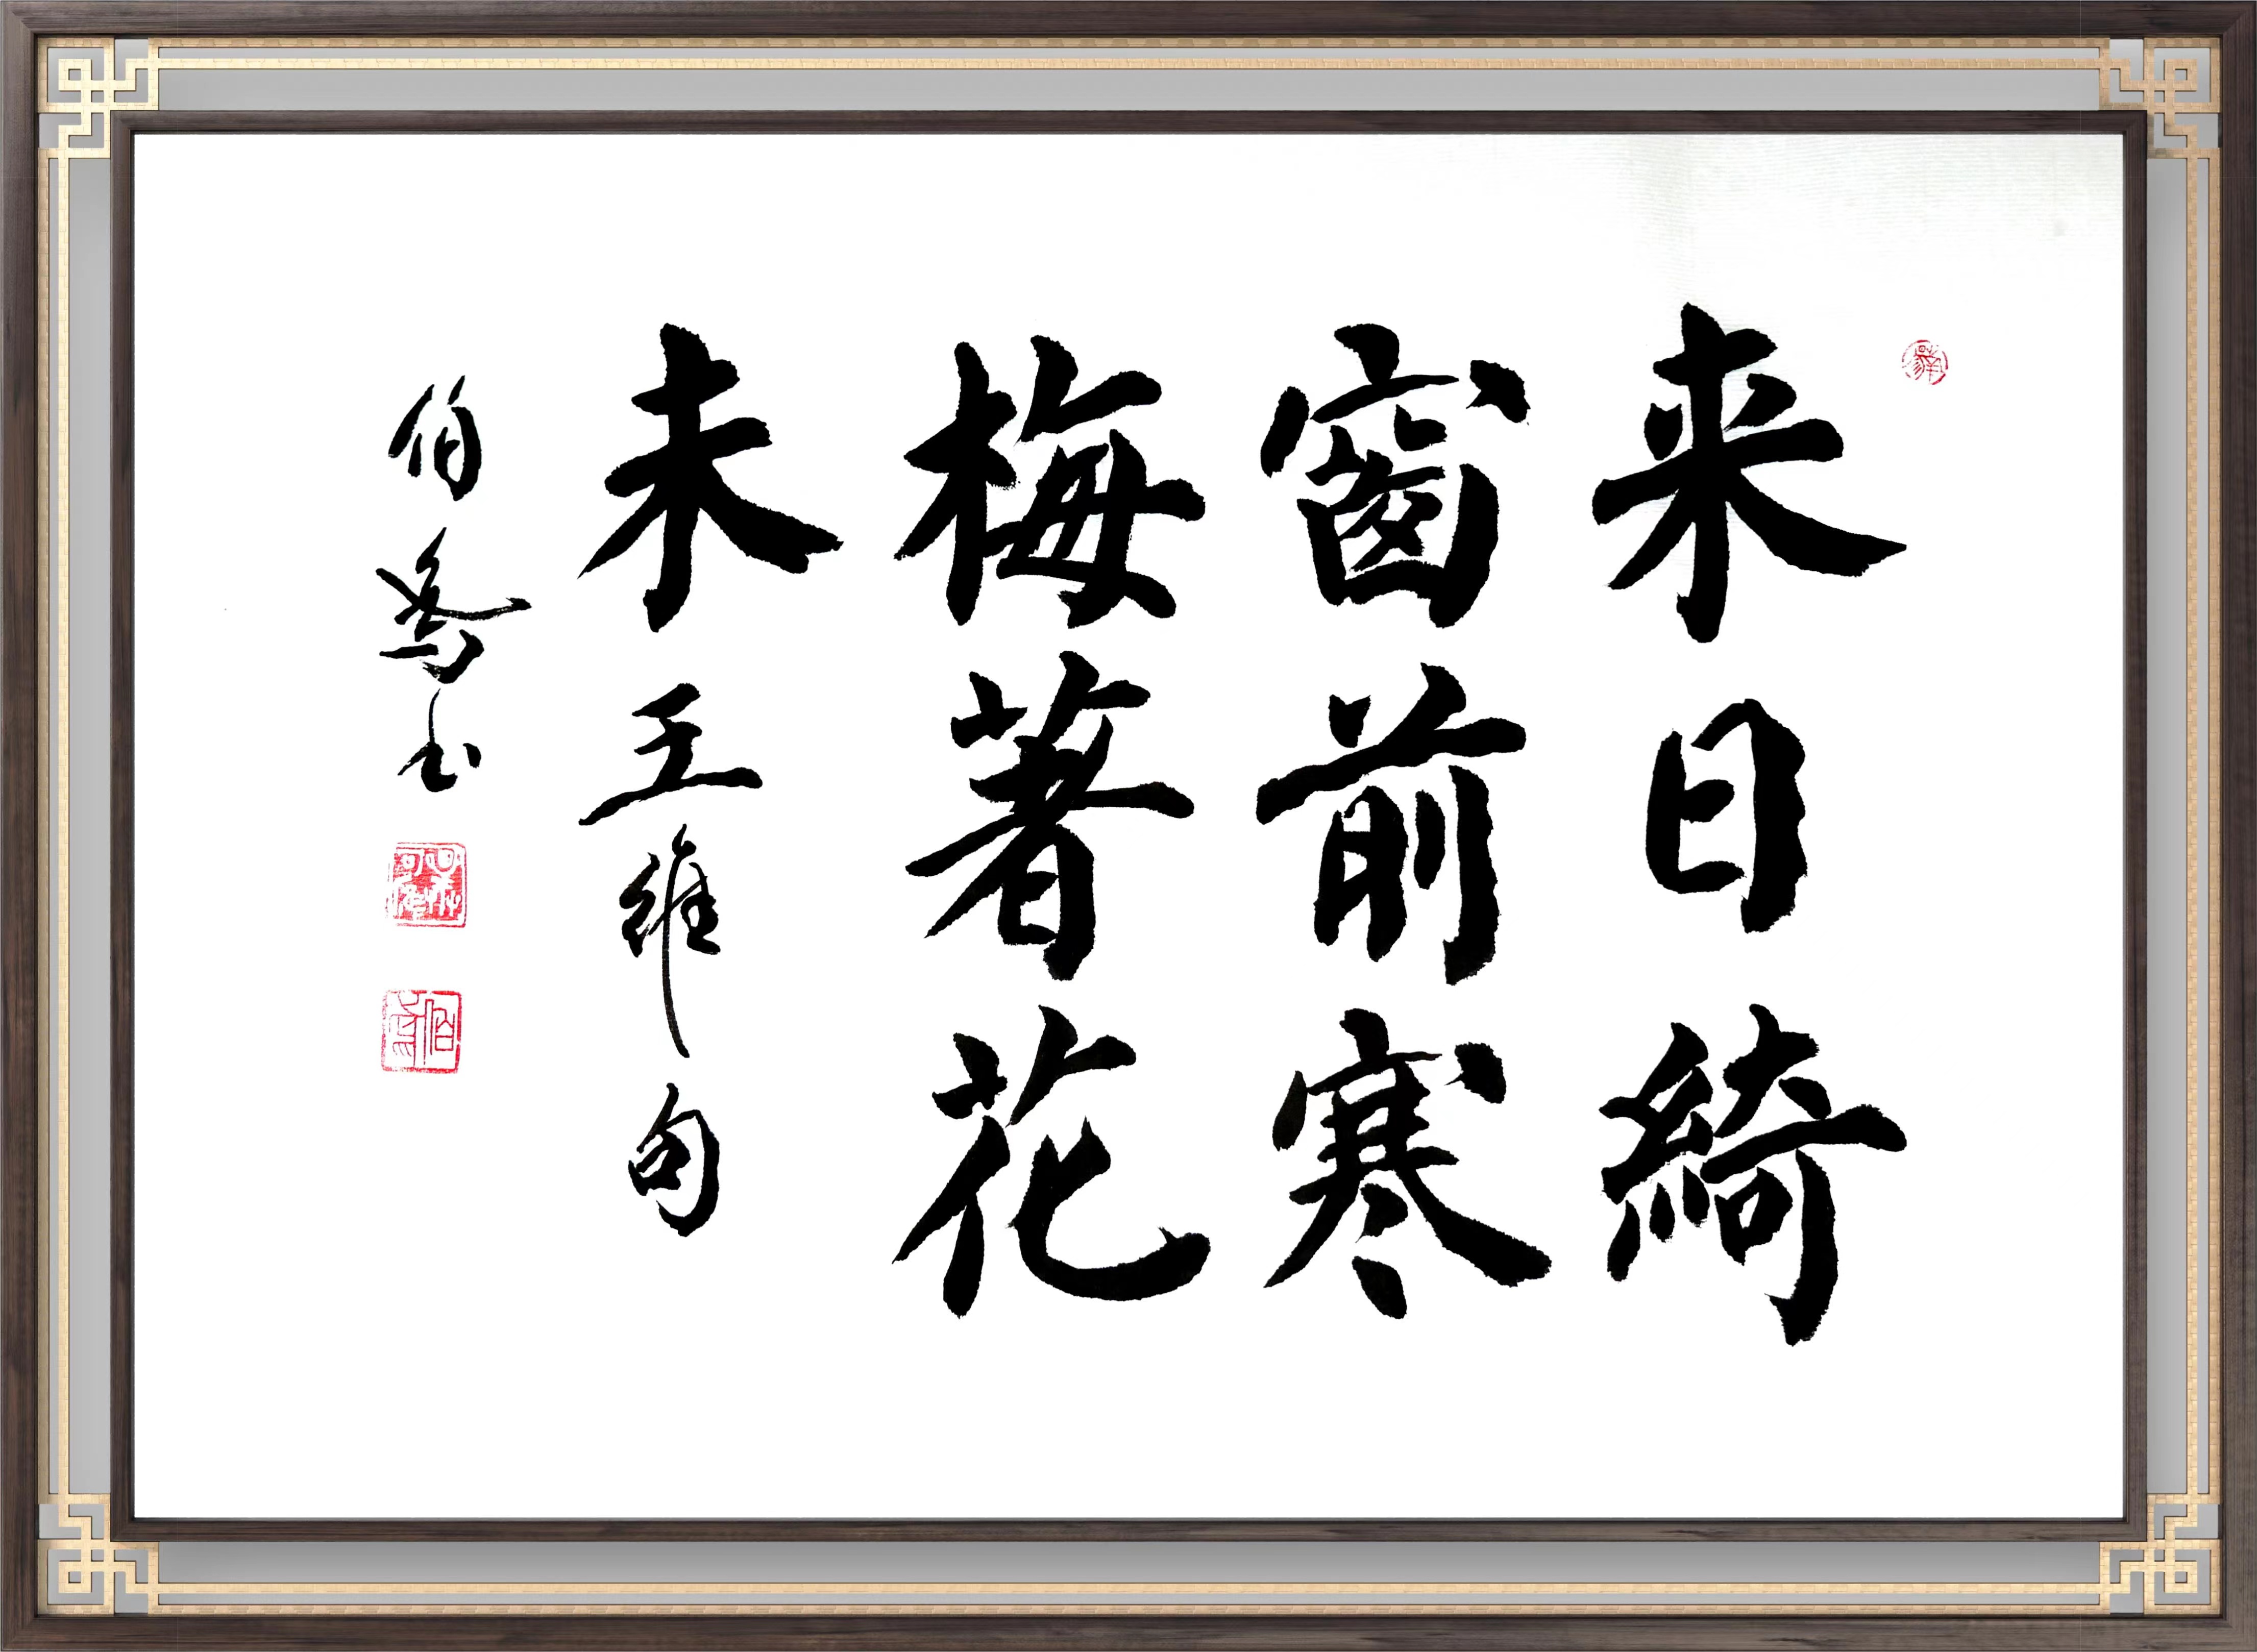 来日綺
窗前寒
梅著花
未 王維句
伯喬书